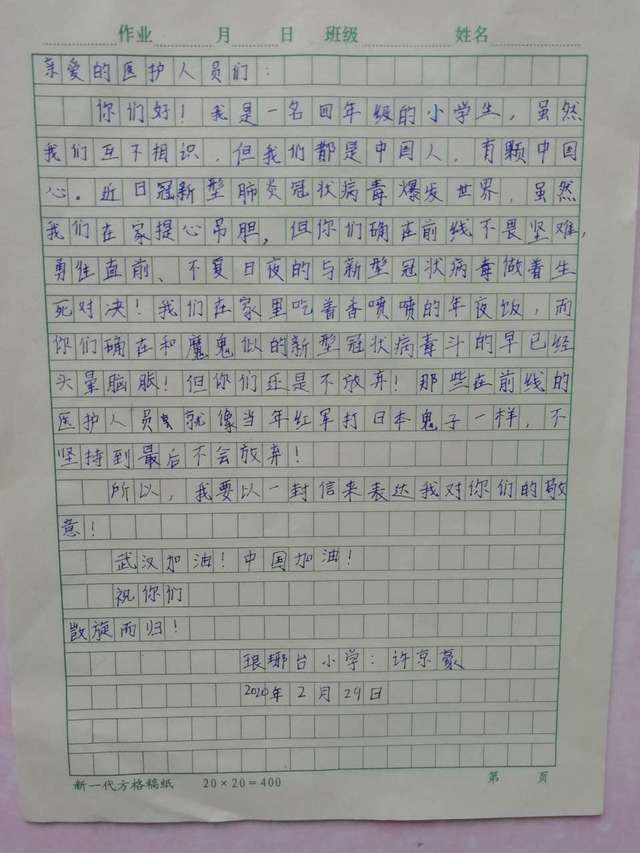 作业 月 日 班级 姓名
亲爱的医护人员们：
你们好！我是一名四年级的小学生，虽然
我们互不相识，但我们都是中国人，有颗中国
心。近日冠新型肺炎冠状病毒爆发世界，虽然
我们在家提心吊胆，但你们确在前线不畏坚难，
勇往直前、不复日夜的与新型冠状病毒做着生
死对决！我们在家里吃着香喷喷的年夜饭，而
你们确在和魔鬼似的新型冠状病毒斗的早已经
头晕脑胀！但你们还是不放弃！那些在前线的
医护人员就像当年红军打日本鬼子一样，不
坚持到最后不会放弃！
所以，我要以一封信来表达我对你们的敬
意！
武汉加油！中国加油！
祝你们
旋而归！
琅琊台小学：许京豪
2020年2月29日
新一代方格稿纸 20×20=400 第 页